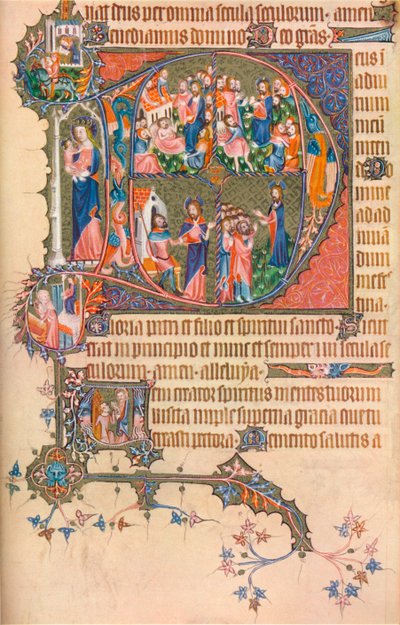 uiat deus per omnia secula seculorum. amen
Benedicamus domino Deo grās.
Deus ī
adiu
torium
meū
inten
de Do
mine
ad ad
iuuā
dum
me fes
tina.
Gloria patri et filio et spiritui sancto. Sicut
erat in principio et nunc et semper et in secula se
culorum. amen. alleluya.
Veni creator spiritus mentes tuorum
visita imple superna gracia que tu
creasti pectora. Memento salutis a